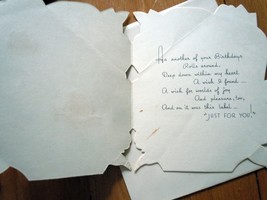 As another of your Birthdays
Rolls around,
Deep down within my heart
A wish I found —
A wish for worlds of joy
And pleasure, too,
And on it was this label . .
"JUST FOR YOU!"